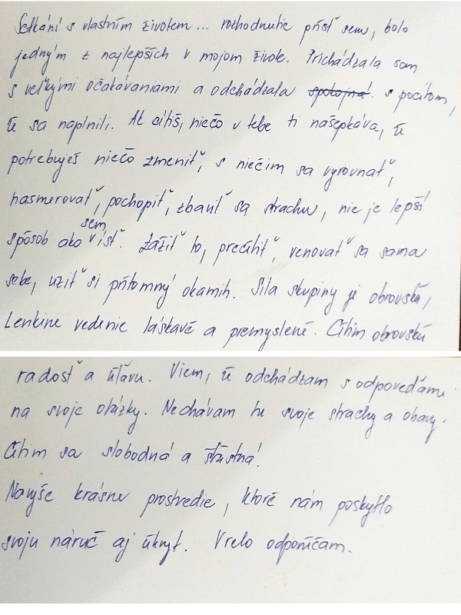 Setkání s vlastním životem... rozhodnutie prísť sem, bolo
jedným z najlepších v mojom živote. Prichádzala som
s veľkými očakávaniami a odchádzala spokojná s pocitom,
že sa naplnili. Ak cítiš, niečo v tebe ti našepkáva, že
potrebuješ niečo zmeniť, s niečím sa vyrovnať,
nasmerovať, pochopiť, zbaviť sa strachu, nie je lepší
spôsob ako sem ísť. Zažiť to, precítiť, venovať sa sama
sebe, užiť si prítomný okamih. Sila skupiny je obrovská,
Lenkine vedenie láskavé a premyslené. Cítim obrovskú
radosť a úľavu. Viem, že odchádzam s odpoveďami
na svoje otázky. Nechávam tu svoje strachy a obavy.
Cítim sa slobodná a šťastná!
Navyše krásne prostredie, ktoré nám poskytlo
svoju náruč aj úkryt. Vrelo odporúčam.